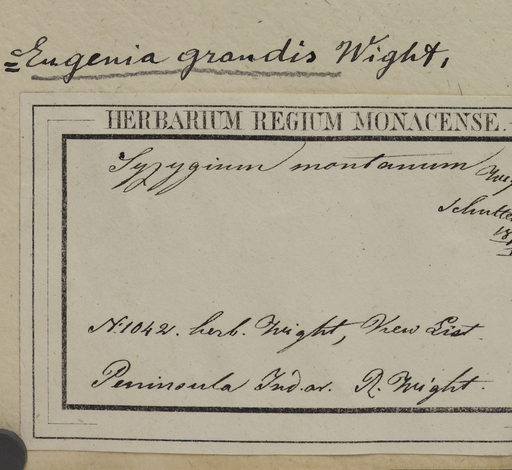 = Eugenia grandis Wight,
HERBARIUM REGIUM MONACENSE.
Syzygium montanum
N. 1042. herb. Wight, Kew List.
Peninsula Ind. or. R. Wight.